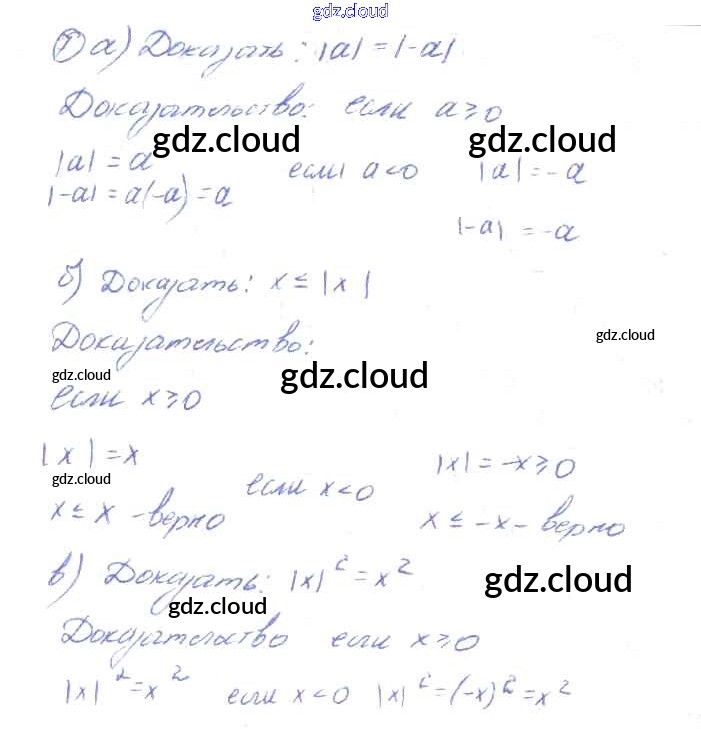 gdz.cloud
① а) Доказать: |a| = |-a|
Доказательство: если a ≥ 0
gdz.cloud gdz.cloud
|a| = a если a < 0 |a| = -a
|-a| = a(-a) = a
|-a| = -a
б) Доказать: x ≤ |x|
Доказательство:
gdz.cloud
gdz.cloud gdz.cloud
если x ≥ 0
|x| = x |x| = -x ≥ 0
gdz.cloud
если x < 0
x ≤ x - верно x ≤ -x - верно
в) Доказать: |x|² = x²
gdz.cloud gdz.cloud
Доказательство если x ≥ 0
|x|² = x² если x < 0 |x|² = (-x)² = x²